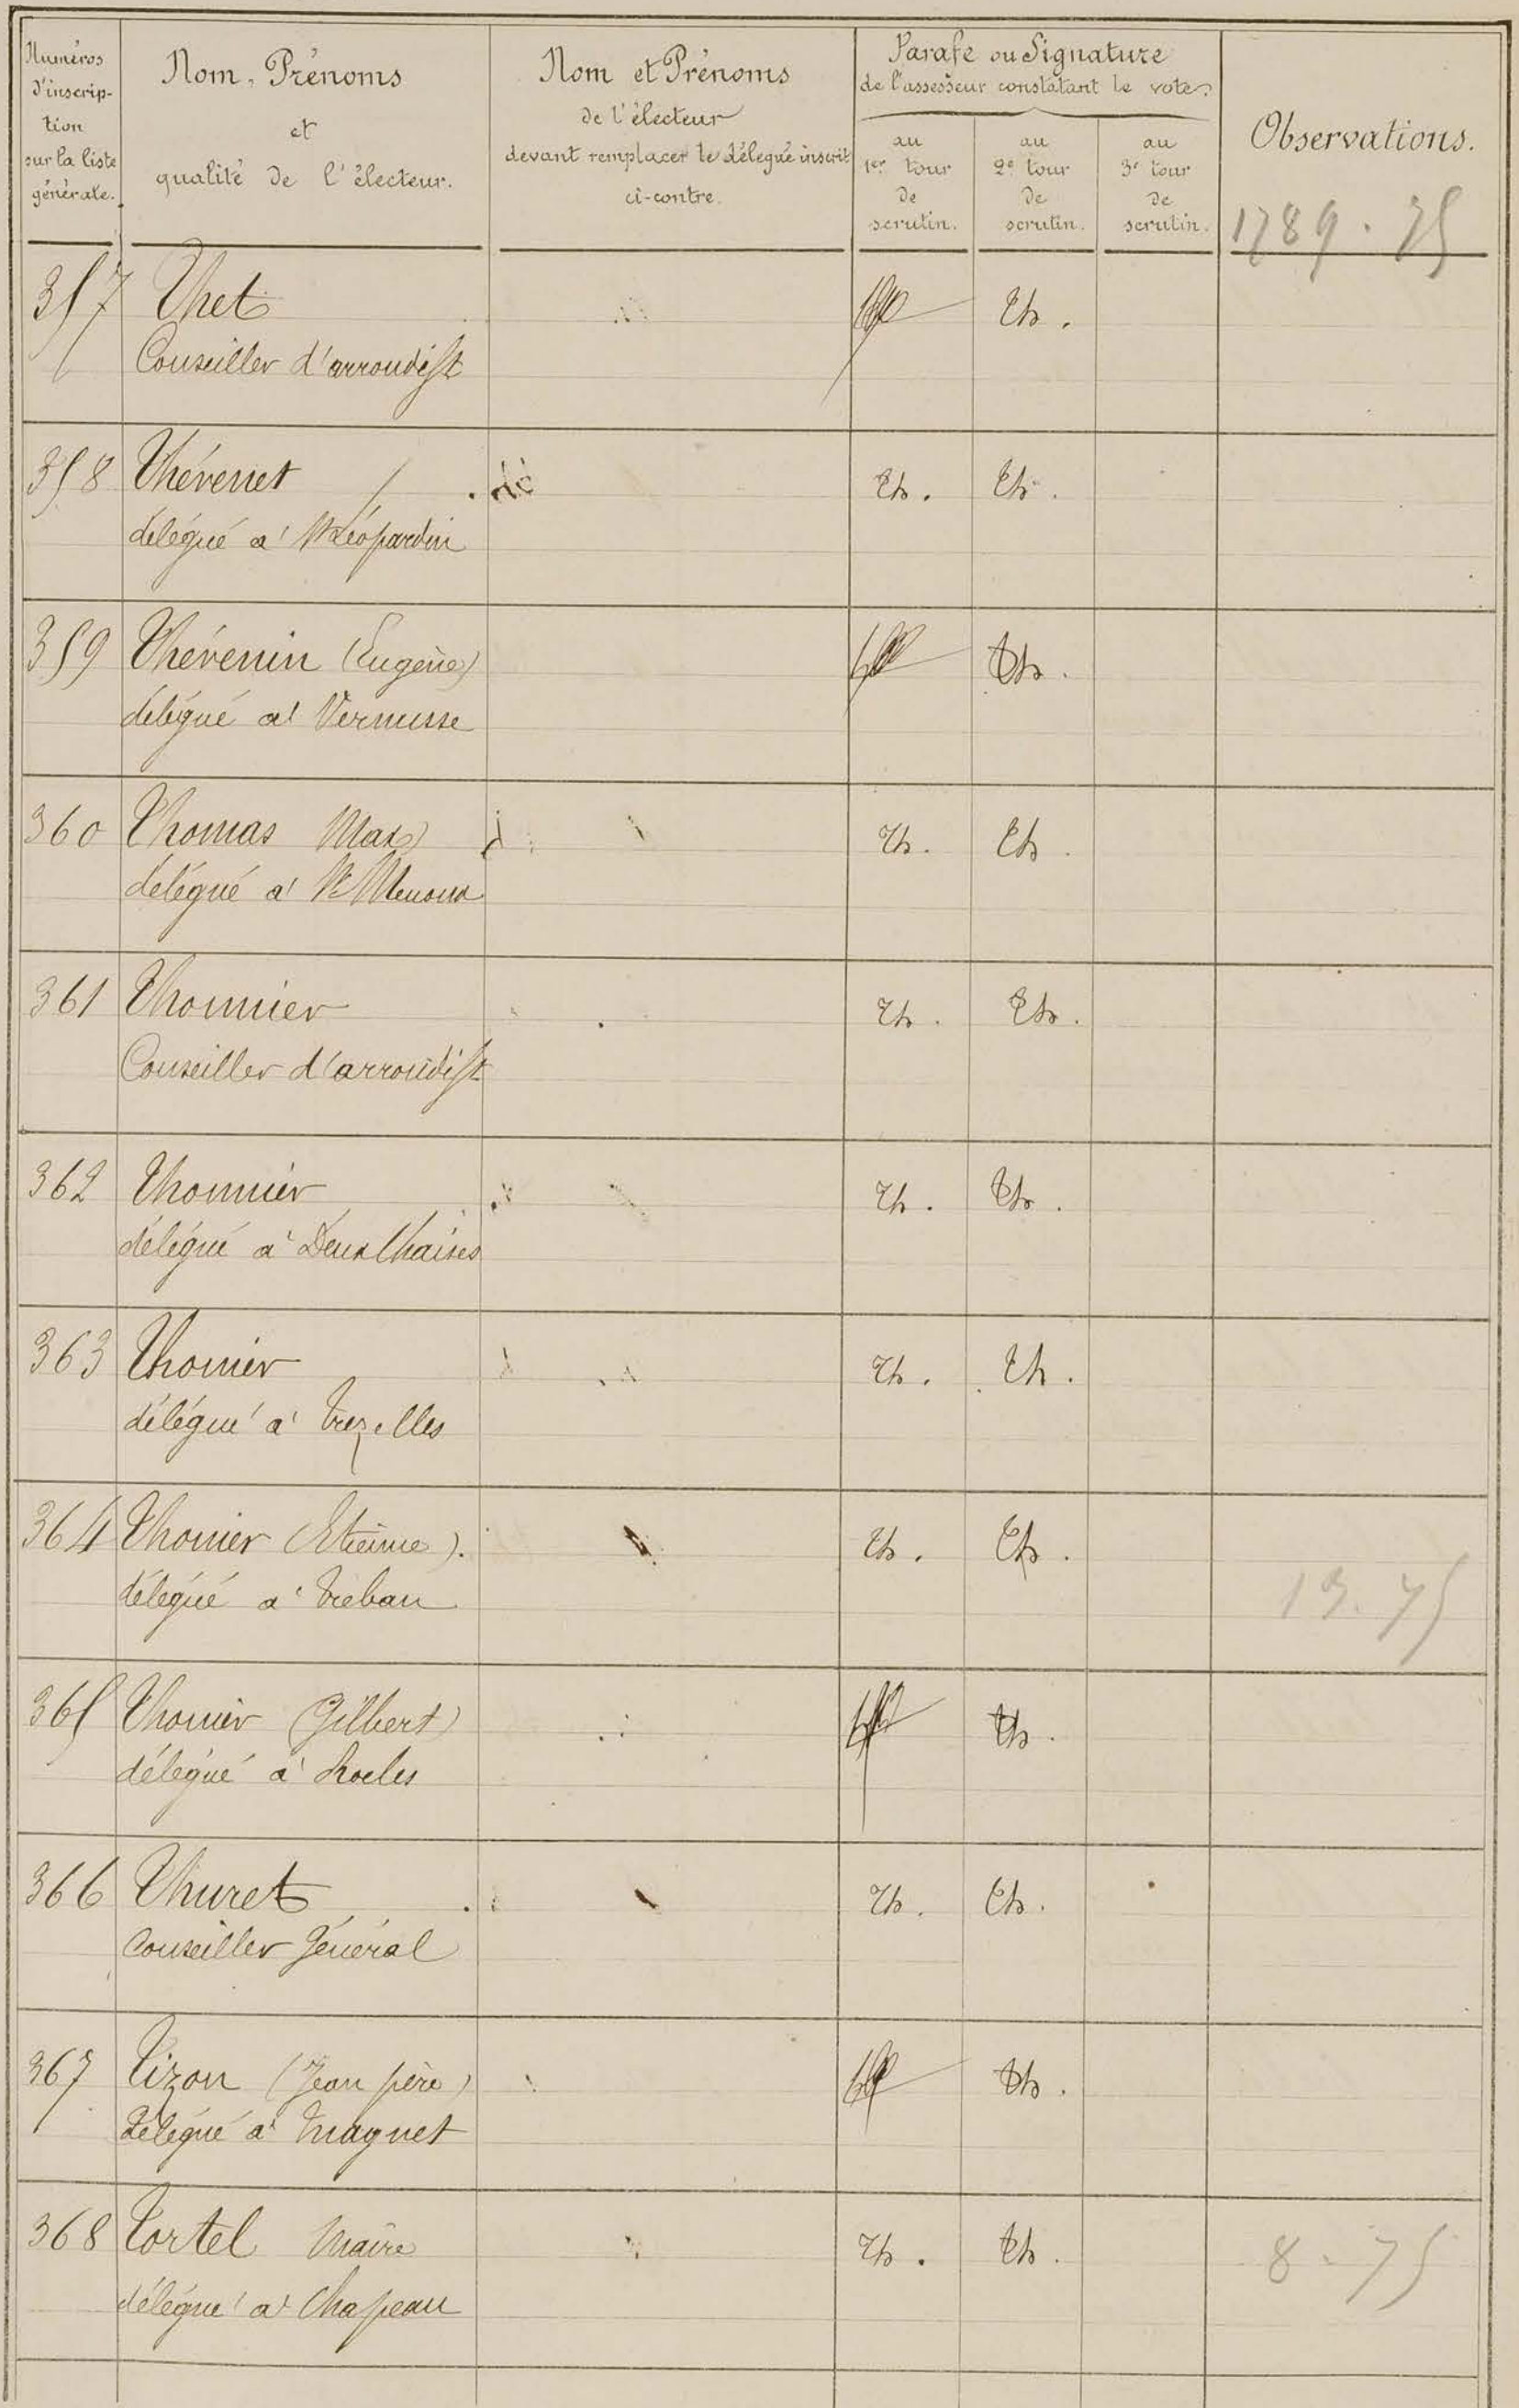 Numéros
d'inscrip-
tion
sur la liste
générale.
Nom, Prénoms
et
qualité de l'électeur.
Nom et Prénoms
de l'électeur
devant remplacer le délégué inscrit
ci-contre.
Parafe ou Signature
de l'assesseur constatant le vote
au
1er tour
de
scrutin.
au
2e tour
de
scrutin.
au
3e tour
de
scrutin.
Observations.
1789.75
357 Thet Th.
Conseiller d'arrondisst
358 Thévenet Th. Th.
délégué à St Léopardin
359 Thévenin (Eugène) Th.
délégué à Vernusse
360 Thomas Max Th. Th.
délégué à St Menoux
361 Thonnier Th. Th.
Conseiller d'arrondisst
362 Thonnier Th. Th.
délégué à Deux Chaises
363 Thonier Th. Th.
délégué à Trezelles
364 Thonier (Etienne). Th. Th.
délégué à Treban
13.75
365 Thonier (Gilbert) Th.
délégué à Rocles
366 Thuret Th. Th.
Conseiller Général
367 Tizon (Jean père) Th.
délégué à Magnet
368 Tortel Maire Th. Th. 8.75
délégué à Chapeau